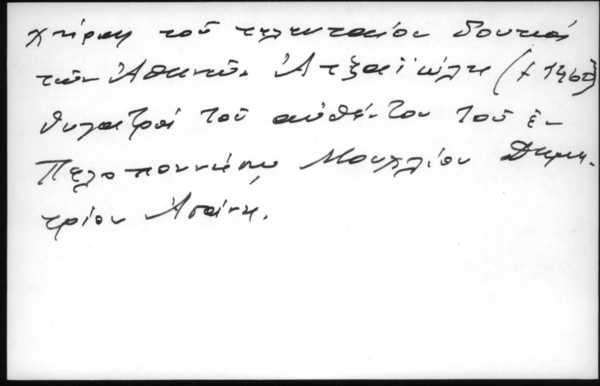 χήρας τοῦ τελευταίου δουκὸς
τῶν Ἀθηνῶν Ἀτζαϊώλη († 1460)
θυγατρὸς τοῦ αὐθέντου τοῦ ἐν
Πελοποννήσῳ Μουχλίου Δημη-
τρίου Ἀσάνη.